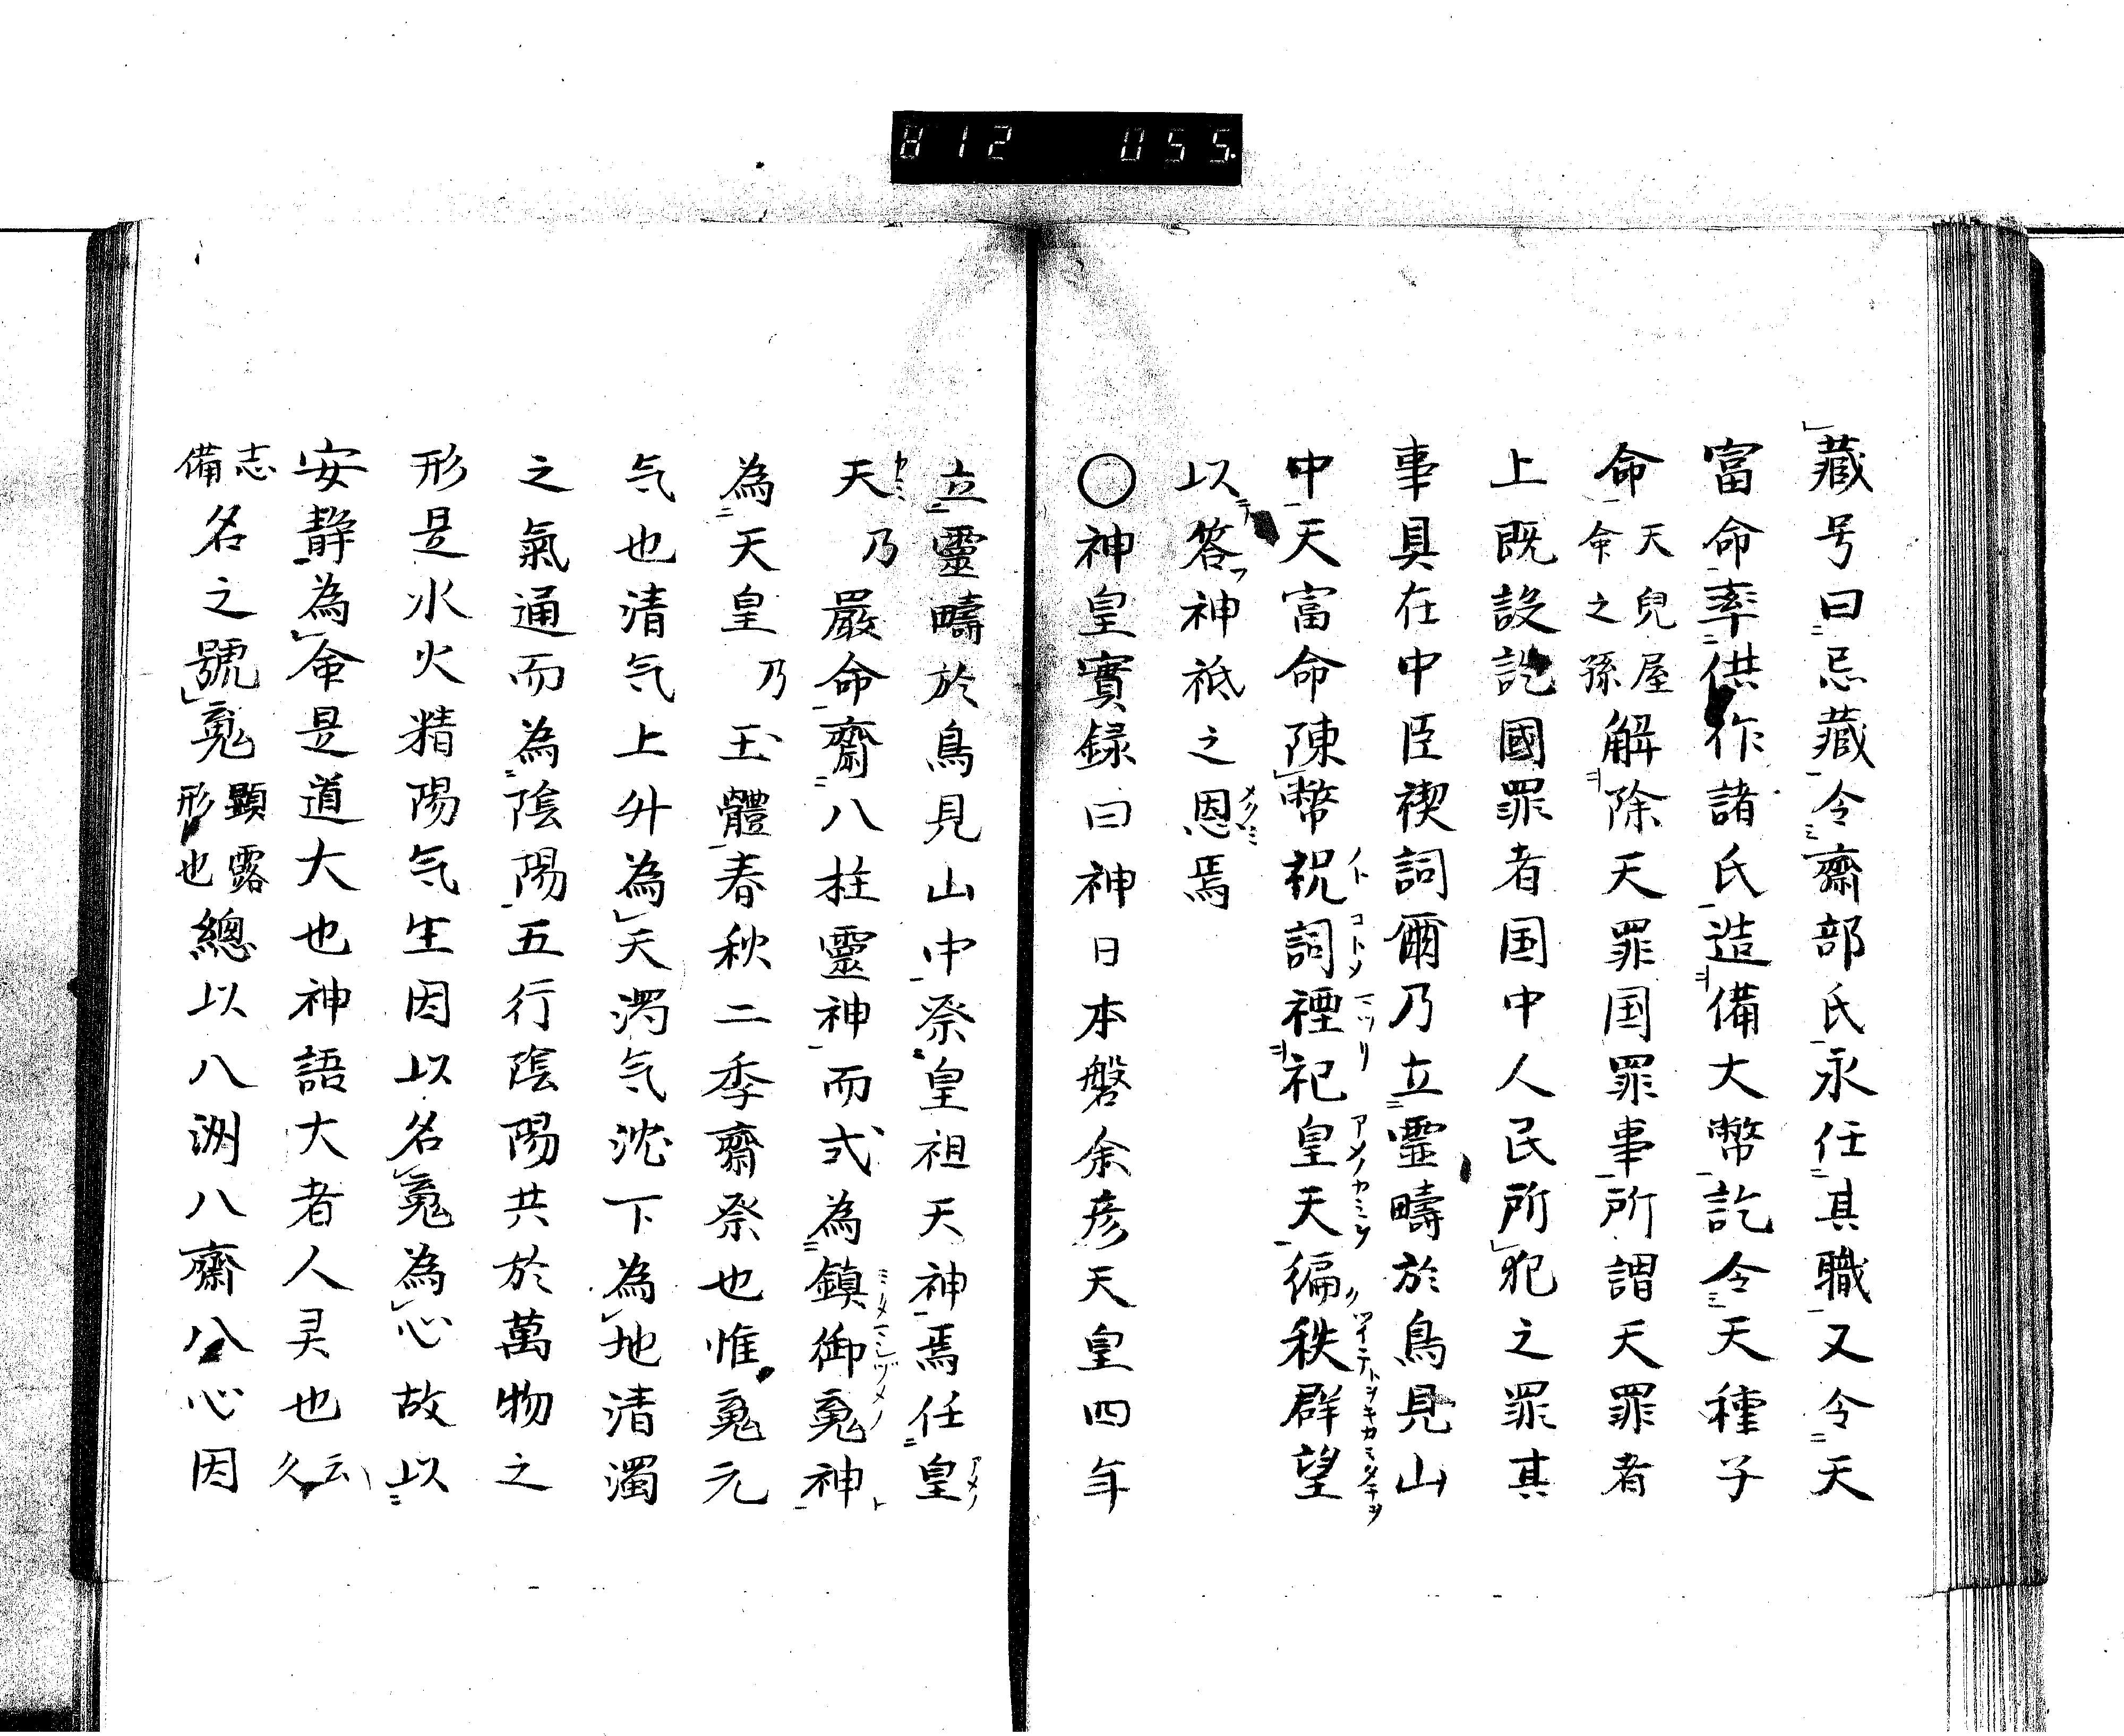 812 055.
藏号曰忌藏令齋部氏永任其職又令天
富命率供作諸氏造備大幣訖令天種子
命天兒屋命之孫解除天罪国罪事所謂天罪者
上既設訖國罪者国中人民所犯之罪其
事具在中臣禊詞爾乃立靈畤於鳥見山
中天富命陳幣祝詞禋祀皇天徧秩群望
以答神祇之恩焉
○神皇實録曰神日本磐余彦天皇四年
立靈疇於鳥見山中祭皇祖天神焉任皇
天乃嚴命齋八柱靈神而式為鎮御䰟神
為天皇乃玉體春秋二季齋祭也惟䰟元
气也清气上升為天濁气沈下為地清濁
之氣通而為陰陽五行陰陽共於萬物之
形是水火精陽气生因以名䰟為心故以
安静為命是道大也神語大者人灵也云久
志備名之號䰟顕露形也總以八洲八齋八心因